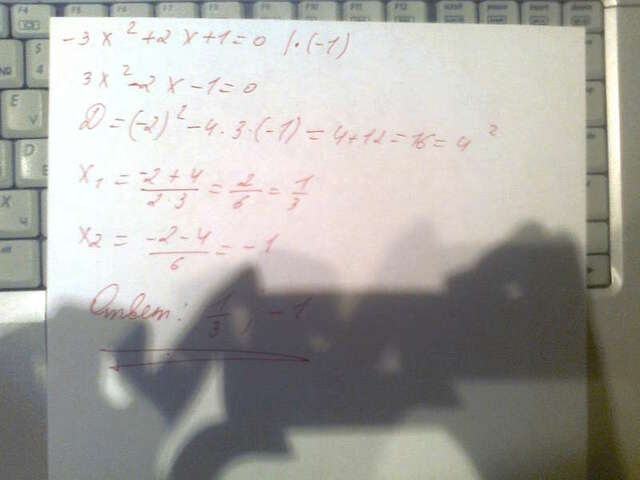 -3x² + 2x + 1 = 0 | · (-1)
3x² - 2x - 1 = 0
D = (-2)² - 4 · 3 · (-1) = 4 + 12 = 16 = 4²
x₁ = (-2 + 4)/(2 · 3) = 2/6 = 1/3
x₂ = (-2 - 4)/6 = -1
Ответ: 1/3, -1